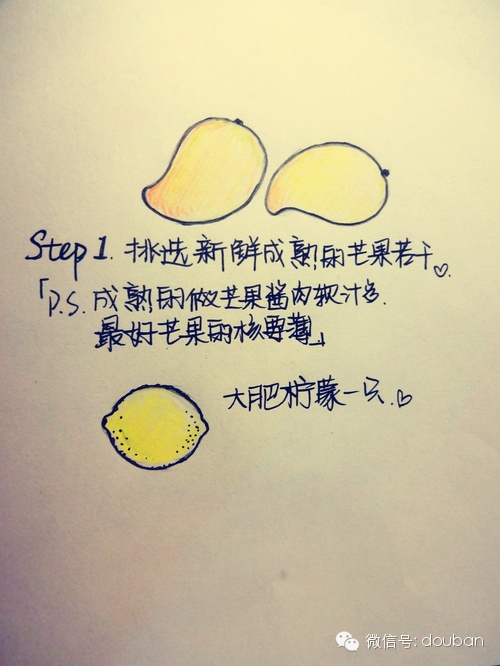 Step 1. 挑选新鲜成熟的芒果若干♡
「P.S. 成熟的做芒果酱肉软汁多.
最好芒果的核要薄」
大肥柠檬一只.♡
微信号: douban